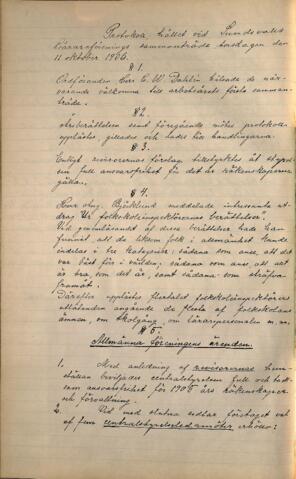 Protokoll hållet vid Sundsvalls
lärareförenings sammanträde torsdagen den
11 oktober 1906.
§ 1.
Ordföranden Herr C. W. Dahlin hälsade de när-
varande välkomna till arbetsårets första samman-
träde.
§ 2.
Årsberättelsen samt föregående mötes protokoll
upplästes, gillades och lades till handlingarna.
§ 3.
Enligt revisorernas förslag tillstyrktes åt styrel-
sen full ansvarsfrihet för det år räkenskaperna
gällas.
§ 4.
Herr Björklund meddelade intressanta ut-
drag ur folkskoleinspektörernas berättelser.
Vid genomläsandet af dessa berättelser hade han
funnit, att de likasom folk i allmänhet kunde
indelas i tre kategorier, sådana som anse, att det
var bäst för i världen, sådana som anse, att det
är bra, som det är, samt sådana som sträfva
framåt.
Därefter upplästes flertalet folkskoleinspektörers
uttalanden angående de flesta af folkskolans
ämnen, om skolgång, om lärarepersonalen m. m.
§ 5.
Allmänna föreningens ärenden.
1. Med anledning af revisorernas hem-
ställan beviljades centralstyrelsen full och tack-
sam ansvarsfrihet för 1905 års räkenskaper
och förvaltning.
2. Vid med slutna sedlar företaget val
af fem centralstyrelseledamöter erhöllo: